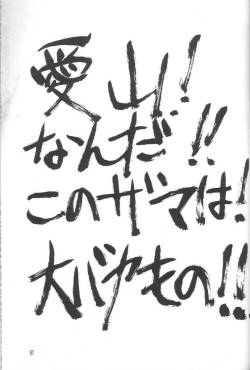 愛山!
なんだ!!
このザマは!
大バカもの!!